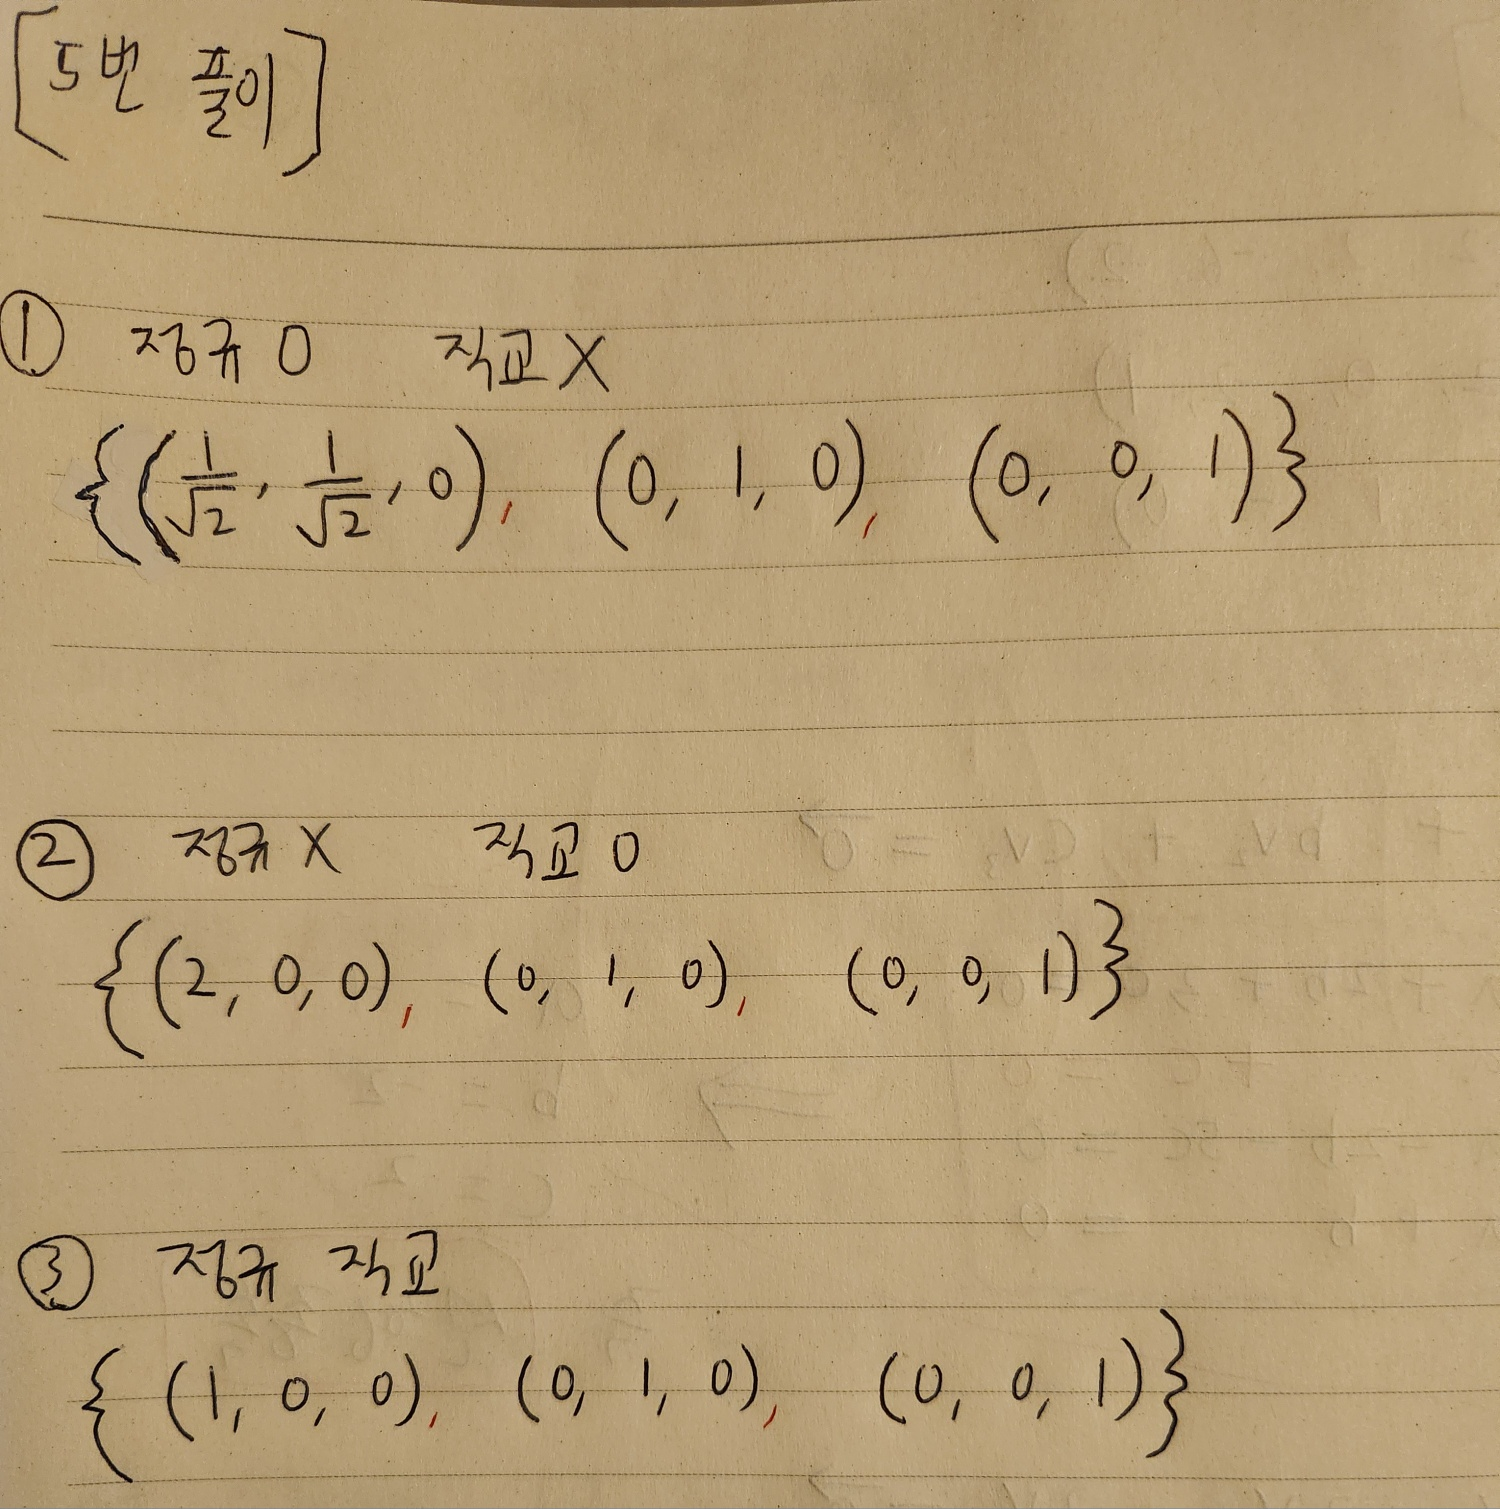 [5번 풀이]
① 정규 O 직교 X
{(1/√2, 1/√2, 0), (0, 1, 0), (0, 0, 1)}
② 정규 X 직교 O
{(2, 0, 0), (0, 1, 0), (0, 0, 1)}
③ 정규 직교
{(1, 0, 0), (0, 1, 0), (0, 0, 1)}